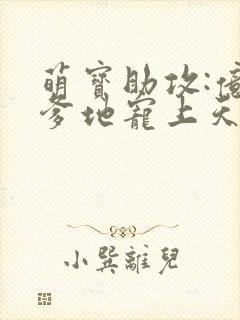 萌寶助攻:億
爹地寵上天
小巽離兒